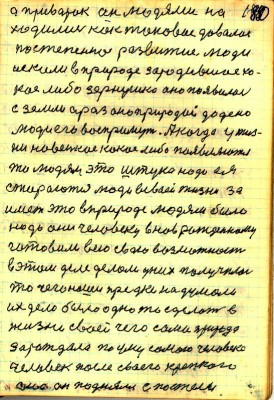 а приварок он людями на
ходился как таковое давался
постепенно развитие люди
искали в природе зародившиеся ка-
кое либо зернушко оно появилос
с земли а раз оно природой дадено
люди его воспримут. А когда у жиз-
ни новенькое какое либо появляется
то людям это штука надо ея
стараются люди в своей жизни за
имет это в природе людям было
надо они человеку вновь рожденному
готовили всю свою возможност
в этом деле делом у них получилос
то чего наши предки надумали
их дело было одно то сделат в
жизни своей чего сама природа
зарождала по уму самого человека
человек после своего крепкого
сна он поднялся с постели